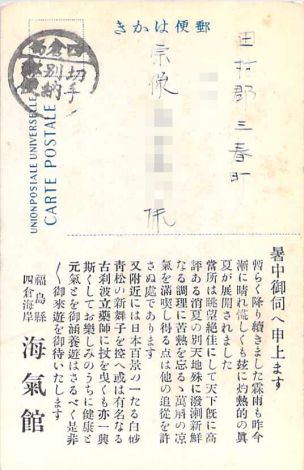 郵便はかき
UNIONPOSTALE UNIVERSELLE
CARTE POSTALE
四倉局
切手別納
郵便
田村郡三春町
宗像
暑中御伺へ申上ます
暫らく降り續きました霖雨も昨今
漸に晴れ慌しくも玆に灼熱的の眞
夏が展開されました
當所は眺望絶佳にして天下既に高
評ある消夏の別天地殊に潑溂新鮮
なる調理に苦熱を忘るゝ萬斛の凉
氣を滿喫し得る点は他の追從を許
さぬ處であります
又附近には日本百景の一たる白砂
青松の新舞子を控へ或は有名なる
古刹波立藥師に技を曳くも亦一興
斯くしてお樂しみのうちに健康と
元氣とを御涵養遊はさるべく是非
〱御來遊を御待いたします
福島縣
四倉海岸
海氣館